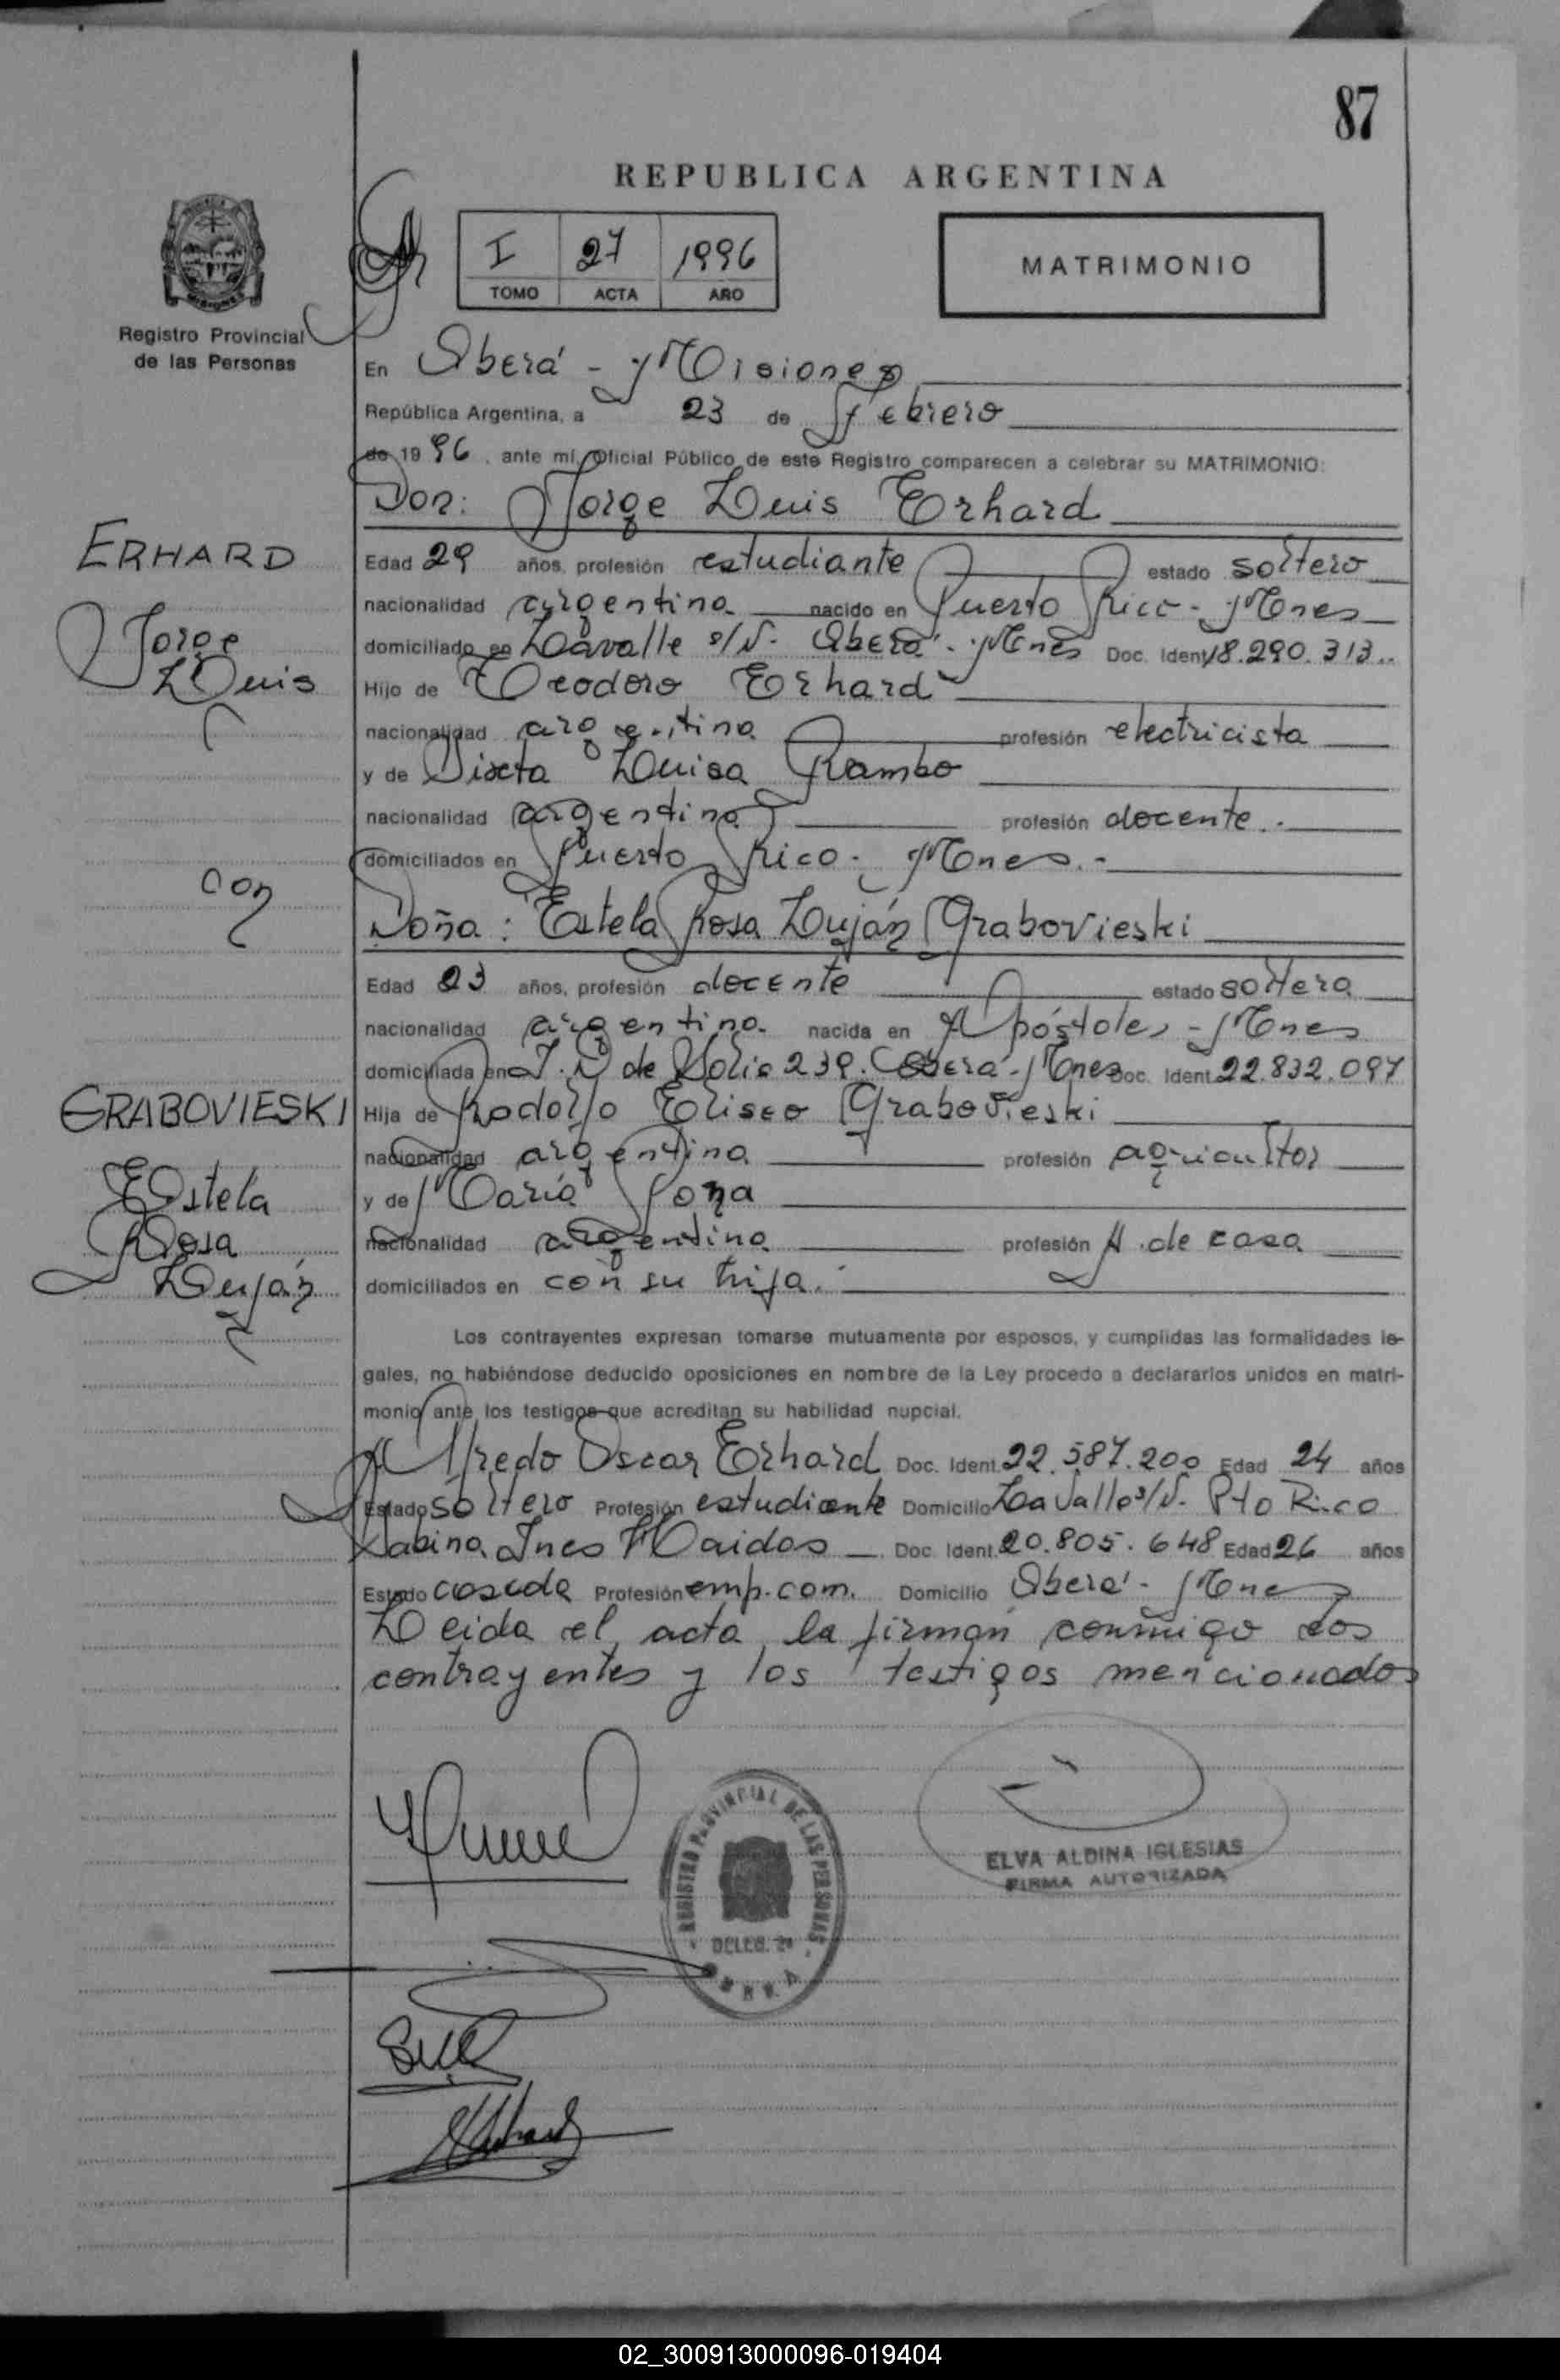 87
REPUBLICA ARGENTINA
I 27 1996
TOMO ACTA AÑO
MATRIMONIO
Registro Provincial
de las Personas
En Oberá - Misiones
República Argentina, a 23 de Febrero
de 1996, ante mí, Oficial Público de este Registro comparecen a celebrar su MATRIMONIO:
Don: Jorge Luis Erhard
ERHARD
Jorge
Luis
Edad 29 años, profesión estudiante estado soltero
nacionalidad argentina nacido en Puerto Rico - Mnes
domiciliado en Lavalle s/N - Oberá - Mnes Doc. Ident. 18.290.313..
Hijo de Teodoro Erhard
nacionalidad argentina profesión electricista
y de Luisa Rambo
nacionalidad argentina profesión docente.-
domiciliados en Puerto Rico - Mnes.-
con
Doña: Estela Rosa Luján Grabovieski
Edad 23 años, profesión docente estado soltera
nacionalidad argentina nacida en Apóstoles - Mnes
domiciliada en J. D de Solis 239. Oberá - Mnes Doc. Ident. 22.832.097
GRABOVIESKI
Estela
Rosa
Luján
Hija de Rodolfo Eliseo Grabovieski
nacionalidad argentina profesión agricultor
y de María
nacionalidad argentina profesión A. de casa
domiciliados en con su hija.-
Los contrayentes expresan tomarse mutuamente por esposos, y cumplidas las formalidades le-
gales, no habiéndose deducido oposiciones en nombre de la Ley procedo a declararlos unidos en matri-
monio ante los testigos que acreditan su habilidad nupcial.
Alfredo Oscar Erhard Doc. Ident. 22.587.200 Edad 24 años
Estado soltero Profesión estudiante Domicilio Lavalle s/N. Pto Rico
Sabina Ines Doc. Ident. 20.805.648 Edad 26 años
Estado casada Profesión emp. com. Domicilio Oberá - Mnes
Leida el acta, la firman conmigo los
contrayentes y los testigos mencionados
REGISTRO PROVINCIAL DE LAS PERSONAS
ELVA ALDINA IGLESIAS
FIRMA AUTORIZADA
02_300913000096-019404